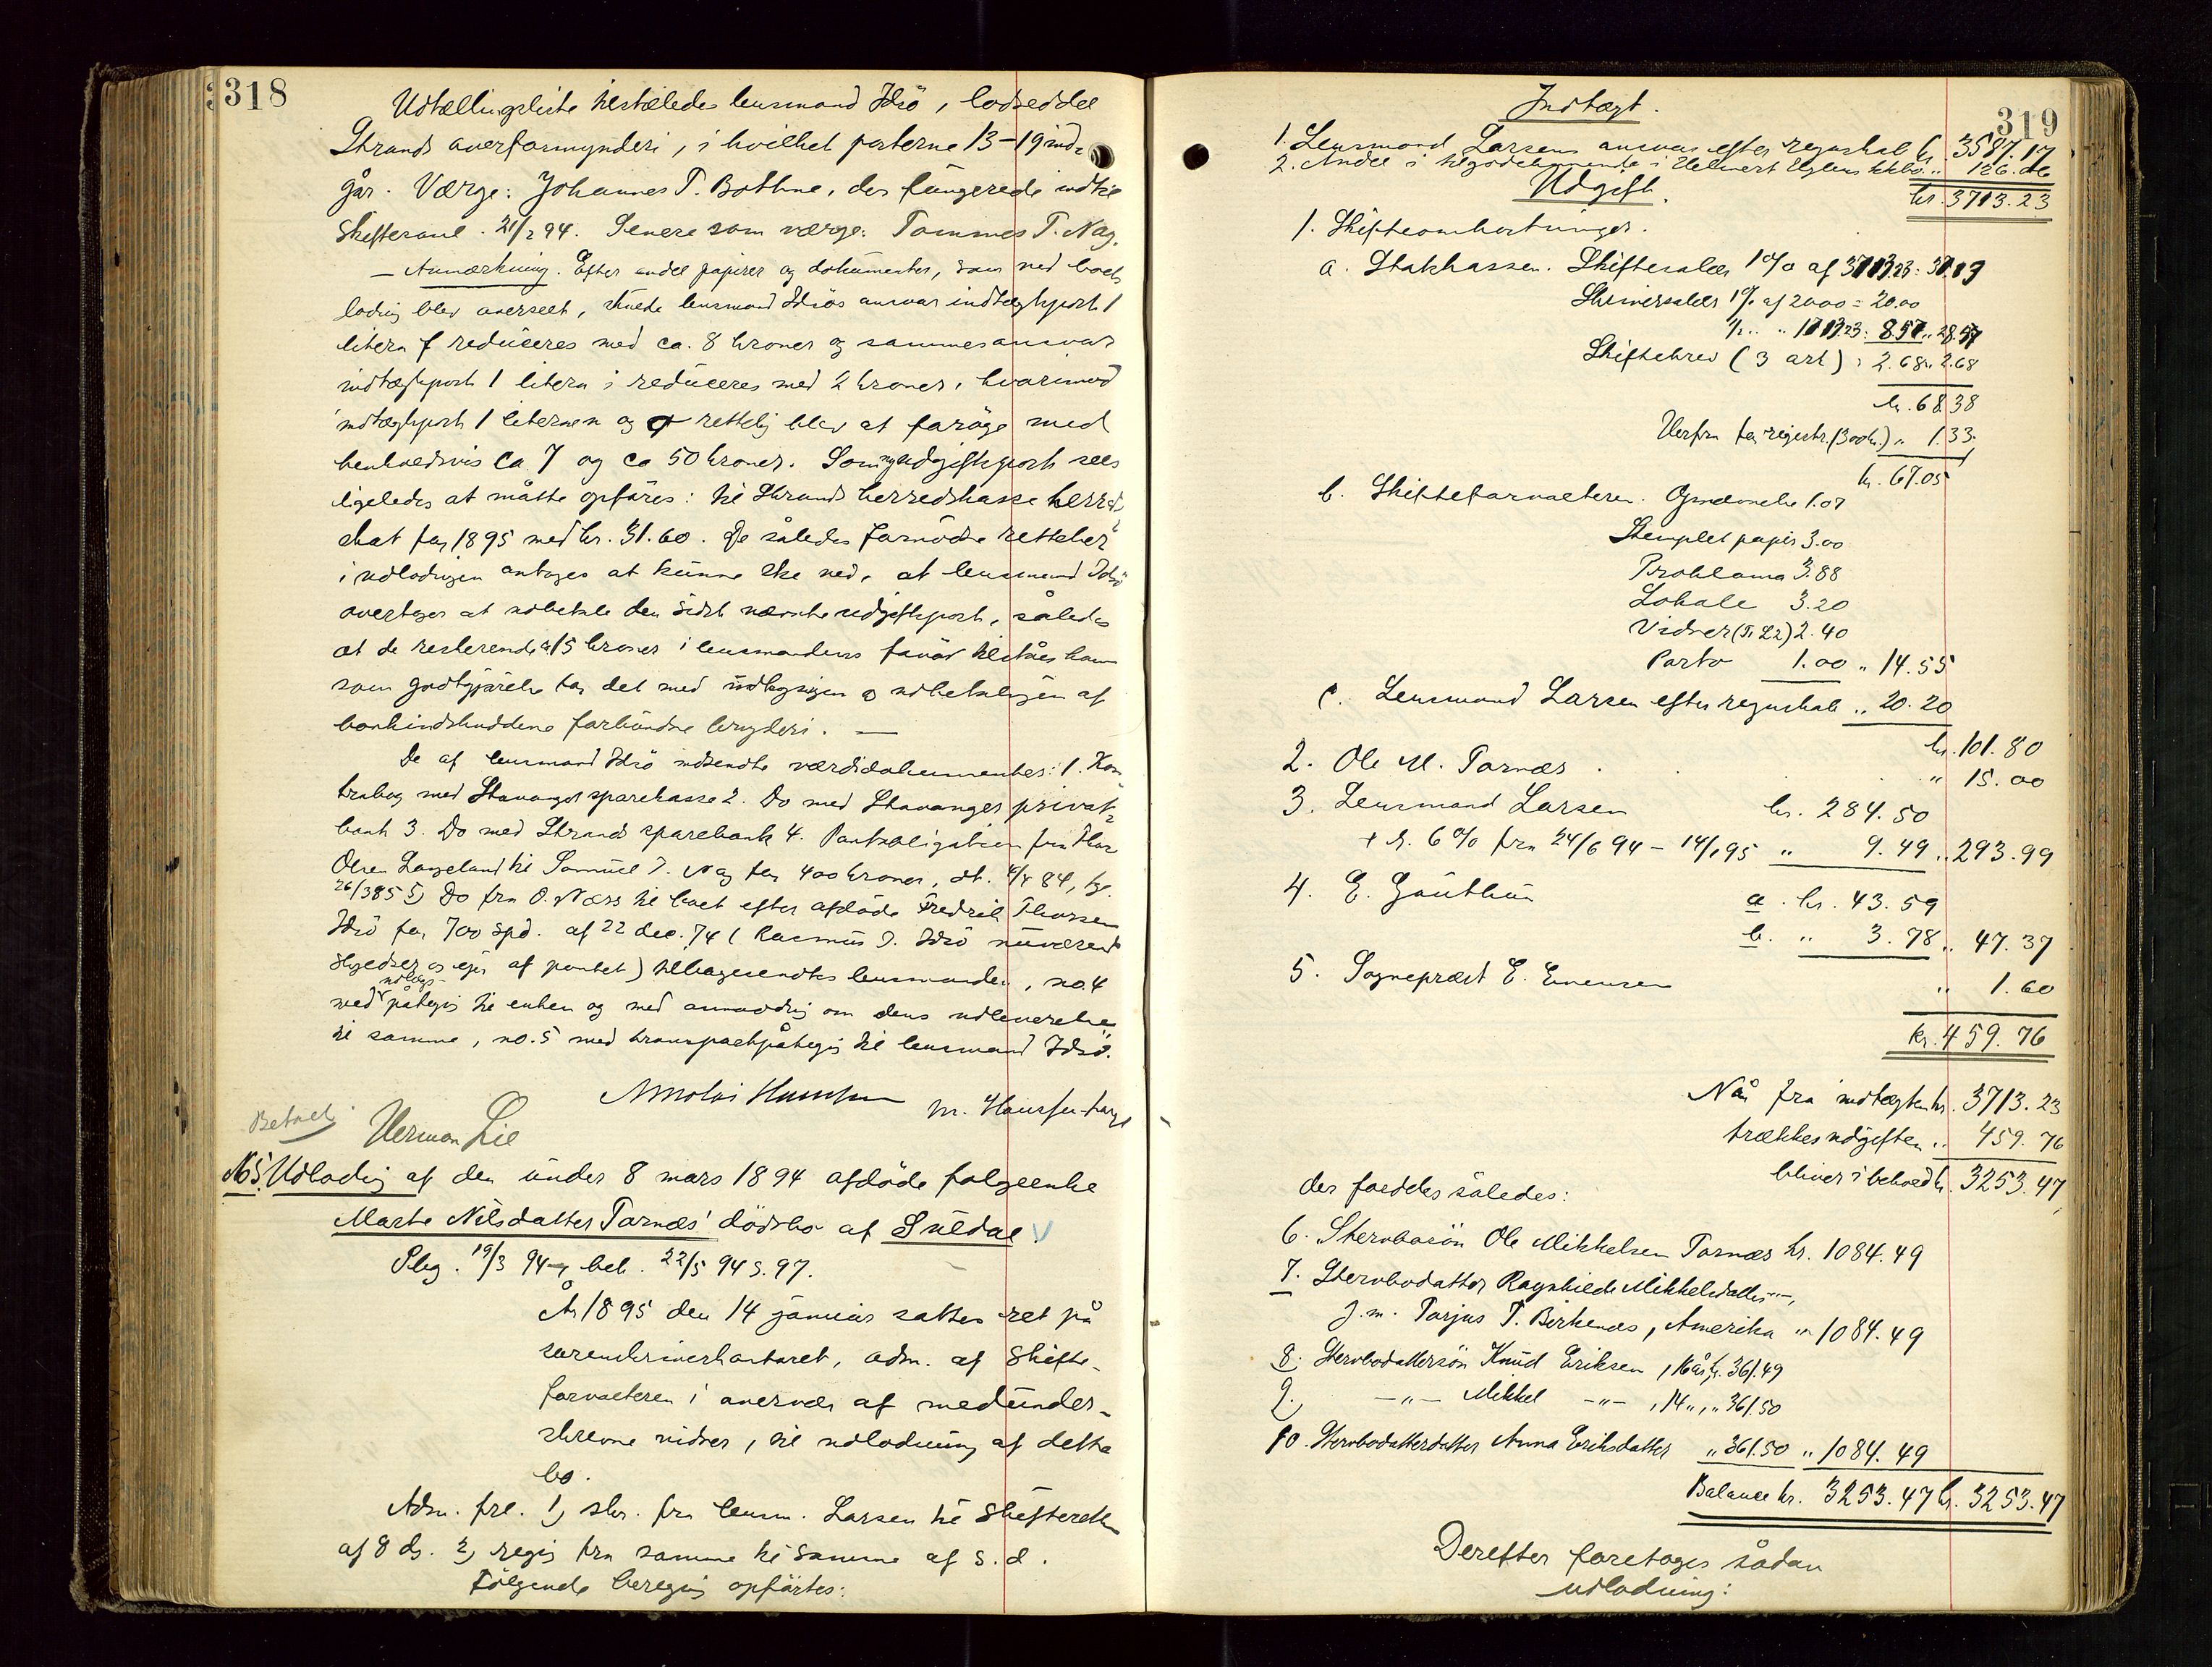 318
Udtællingsliste tilstilledes lensmand Idsö, lodseddel
Strands overformynderi, i hvilket posterne 13-19 ind-
går. Værge: Johannes T. Bothne, der fungerede indtil
skiftesaml. 21/2 94. Senere som værge: Tommes T. Nag.
- Anmærkning. Efter endel papirer og dokumenter, som ved boets
lodnig blev overseet, skulde lensmand Idsös ansvar indtægtspost 1
litera f reduceres med ca. 8 kroner og sammes ansvar
indtægtspost 1 litera i reduceres med 2 kroner, hvorimod
indtægtspost 1 litera n og o rettelig blev at foröge med
henholdsvis ca 7 og ca 50 kroner. Som ny udgiftspost sees
ligeledes at måtte opföres: til Strands herredskasse herreds-
skat for 1895 med kr. 31.60. De således fornödne rettelser
i udlodnigen antages at kunne ske ved, at lensmand Idsö
overtager at udbetale den sidst nævnte udgiftspost, således
at de resterende 15 kroner i lensmandens favör tilståes ham
som godtgjörelse for det med indtagigen og udbetaligen af
bankindskuddene forbundne bryderi. —
De af lensmand Idsö indsendte værdidokumenter: 1. Kon-
trabog med Stavanger sparekasse 2. Do med Stavanger privat-
bank 3. Do med Strands sparebank 4. Pantobligation fra Thor
Olsen Langeland til Samuel T. Nag for 400 kroner, dt. 4/4 84, tgl.
26/3 85 5, Do fra O. Næss til boet efter afdöde Fredrik Thorsen
Idsö for 700 spd. af 22 dec. 74 (Rasmus T. Idsö nuværende
skyldner og ejer af pantet) tilbagesendtes lensmanden, no. 4
med udlægs-påtegn til enken og med anmodnig om dens udleverelse
til samme, no. 5 med transportpåtegn til lensmand Idsö.
M. Hansen
Betalt Herman Lie
No 5. Udlodnig af den under 8 mars 1894 afdöde folgeenke
Marte Nilsdatter Tornæs' dödsbo af Suldal.
Reg. 19/3 94, bek. 22/5 94 s. 97.
År 1895 den 14 januar sattes ret på
sorenskriverkontoret, adm. af skifte-
forvalteren i overvær af medunder-
skrevne vidner, til udlodning af dette
bo.
Adm. frl. 1, skr. fra lensm. Larsen til skifteretten
af 8 ds. 2, regn fra samme til samme af s. d.
Fölgende beregng opförtes:
319
Indtægt.
1. Lensmand Larsens ansvar efter regnskab kr. 3587.17
2. Andel i tilgodehavende i Helmert bo " 126.06
kr. 3713.23
Udgift.
1. Skifteomkostninger.
a. Statskassen. Skiftesalær 1% af 3713.23: 37.13
Skriversalær 1% af 2000 = 20.00
1/2 " " 1713.23: 8.57 " 28.57
Skiftebrev (3 ark) : 2.68 " 2.68
kr. 68.38
Herfra for registr. (300 kr.) " 1.33
kr. 67.05
b. Skifteforvalteren. Gjenstande 1.07
Stemplet papir 3.00
Proklama 3.88
Lokale 3.20
Vidner 2.40
Porto 1.00 " 14.55
c. Lensmand Larsen efter regnskab " 20.20
kr. 101.80
2. Ole M. Tornæs . . " 15.00
3. Lensmand Larsen kr. 284.50
+ r. 6% fra 24/6 94 - 14/1 95 " 9.49 " 293.99
4. E. Gauthun a. kr. 43.59
b. " 3.78 " 47.37
5. Sogneprest E. Evensen " 1.60
kr. 459.76
Når fra indtægten kr. 3713.23
trækkes udgiften " 459.76
bliver i behold kr. 3253.47
der fordeles således:
6. Stervbosön Ole Mikkelsen Tornæs kr. 1084.49
7. Stervbodatter Ragnhilde Mikkelsdatter —"—,
g. m. Torjus T. Birkenes, Amerika " 1084.49
8. Stervbodattersön Knud Eriksen, 16 år, kr. 361.49
9. —"— Mikkel —"—, 14 ", " 361.50
10. Stervbodatterdatter Anna Eriksdatter " 361.50 " 1084.49
Balance kr. 3253.47 kr. 3253.47
Derefter foretages sådan
udlodning: